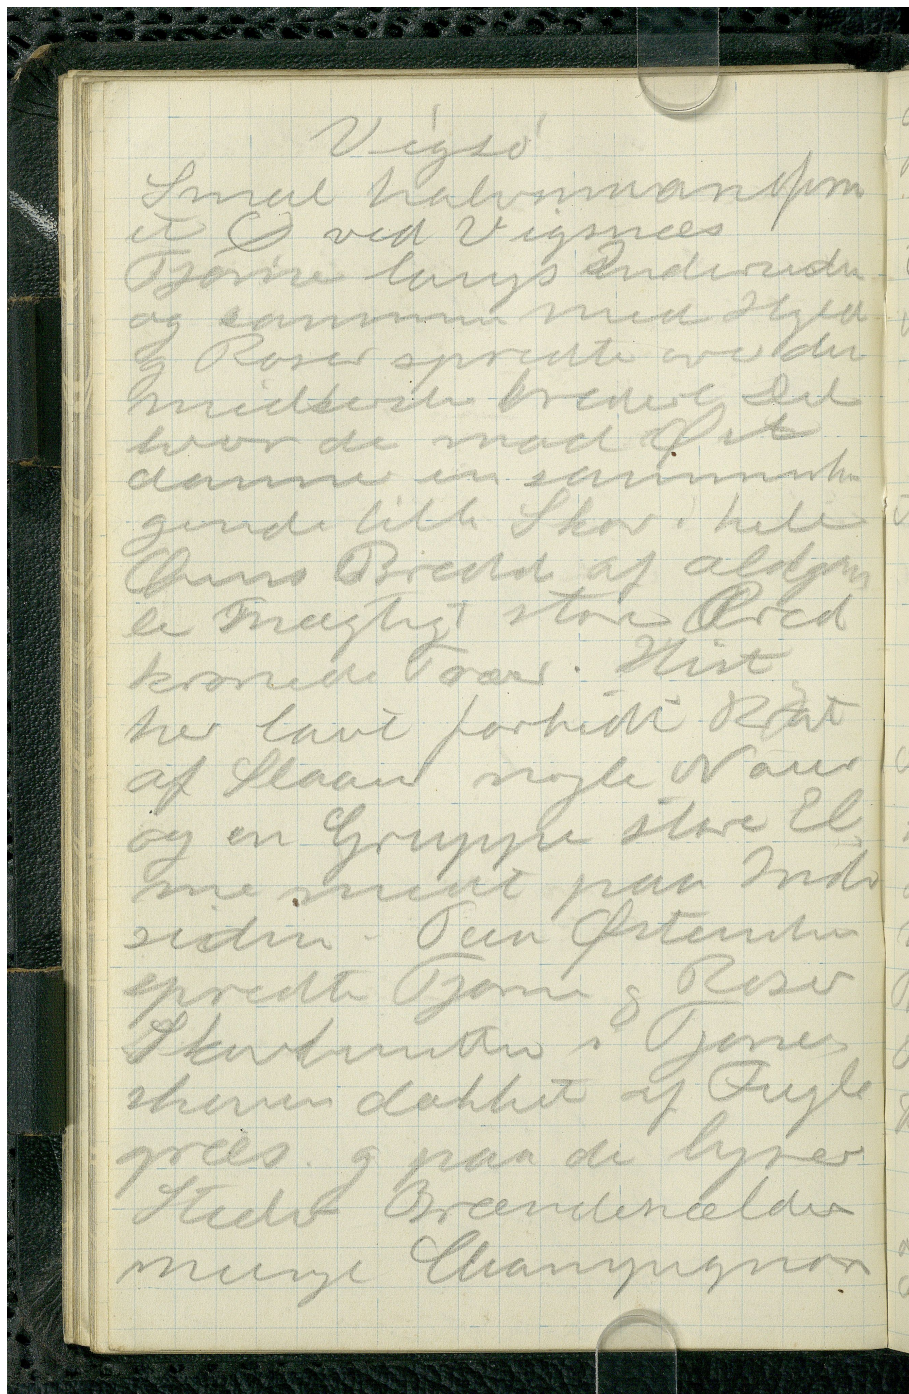 Vigsø
Smal halvmaaneform
et Ø ved Vigsnæs
Tjørne langs Indersiden
og sammen med Hyld
og Roser spredte over den
midterste bredere Del
hvor de mod Øst
danner en sammenhæn
gende lille Skov i hele
Øens Bredde af aldgam
le mægtigt store Bred
kronede Træer. Hist
her lavt forbidt Krat
af Slaaen nogle Naur
og en Gruppe store El
me midt paa Inder
siden. Paa Østenden
spredte Tjørne og Roser
Skovbunden i Tjørne
skoven dækket af Fugle
græs. og paa de lysere
Steder Brændenælder
mange Champignon